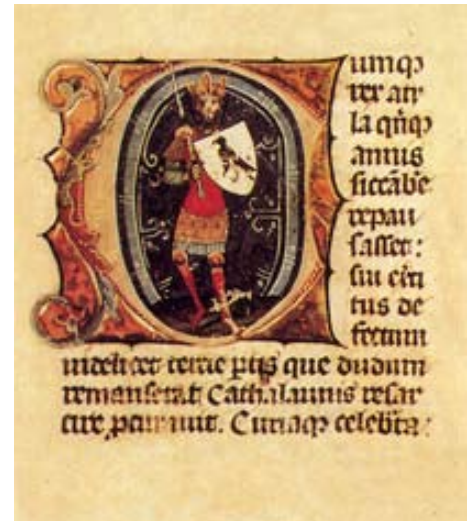 umqꝫ
rex ati
la qnqꝫ
annis
siccābe
repau
sasset:
sui exci
tus de
fectum
videlicet tercie ptis que dudum
remanserat Cathalaunis resar
cire pcurauit. Curiaqꝫ celebrata